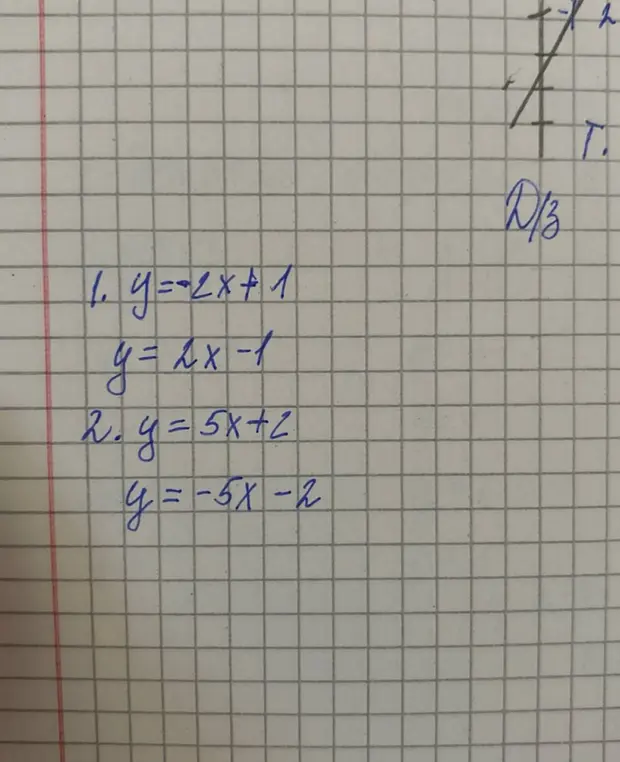 -1 2
Т.
Д/з
1. y=-2x+1
y=2x-1
2. y=5x+2
y=-5x-2